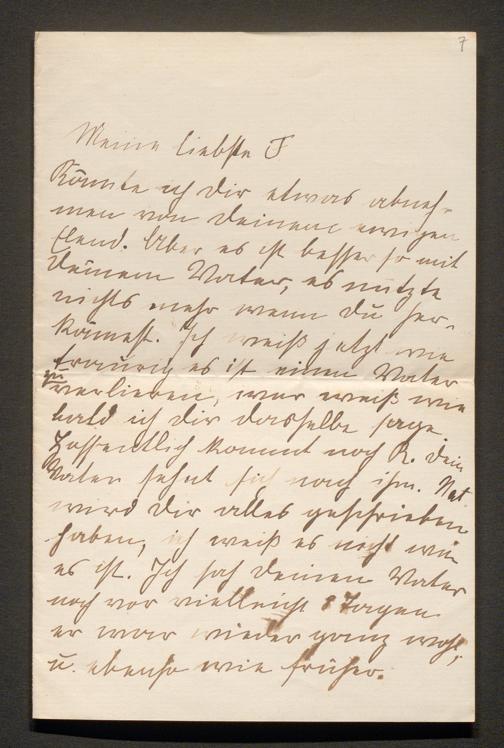 7
Meine liebste F
Könnte ich Dir etwas abneh-
men von Deinem ewigen
Elend. Aber es ist besser so mit
Deinem Vater, es nützte
nichts mehr wenn Du her-
kämest. Ich weiß jetzt wie
traurig es ist einen Vater
zu verlieren, wer weiß wie
bald ich Dir dasselbe sage.
Hoffentlich kommt noch R. Dein
Vater sehnt sich nach ihm. Nat
wird Dir alles geschrieben
haben, ich weiß es nicht wie
es ist. Ich sah Deinen Vater
noch vor vielleicht 8 Tagen
er war wieder ganz wohl,
u. ebenso wie früher.